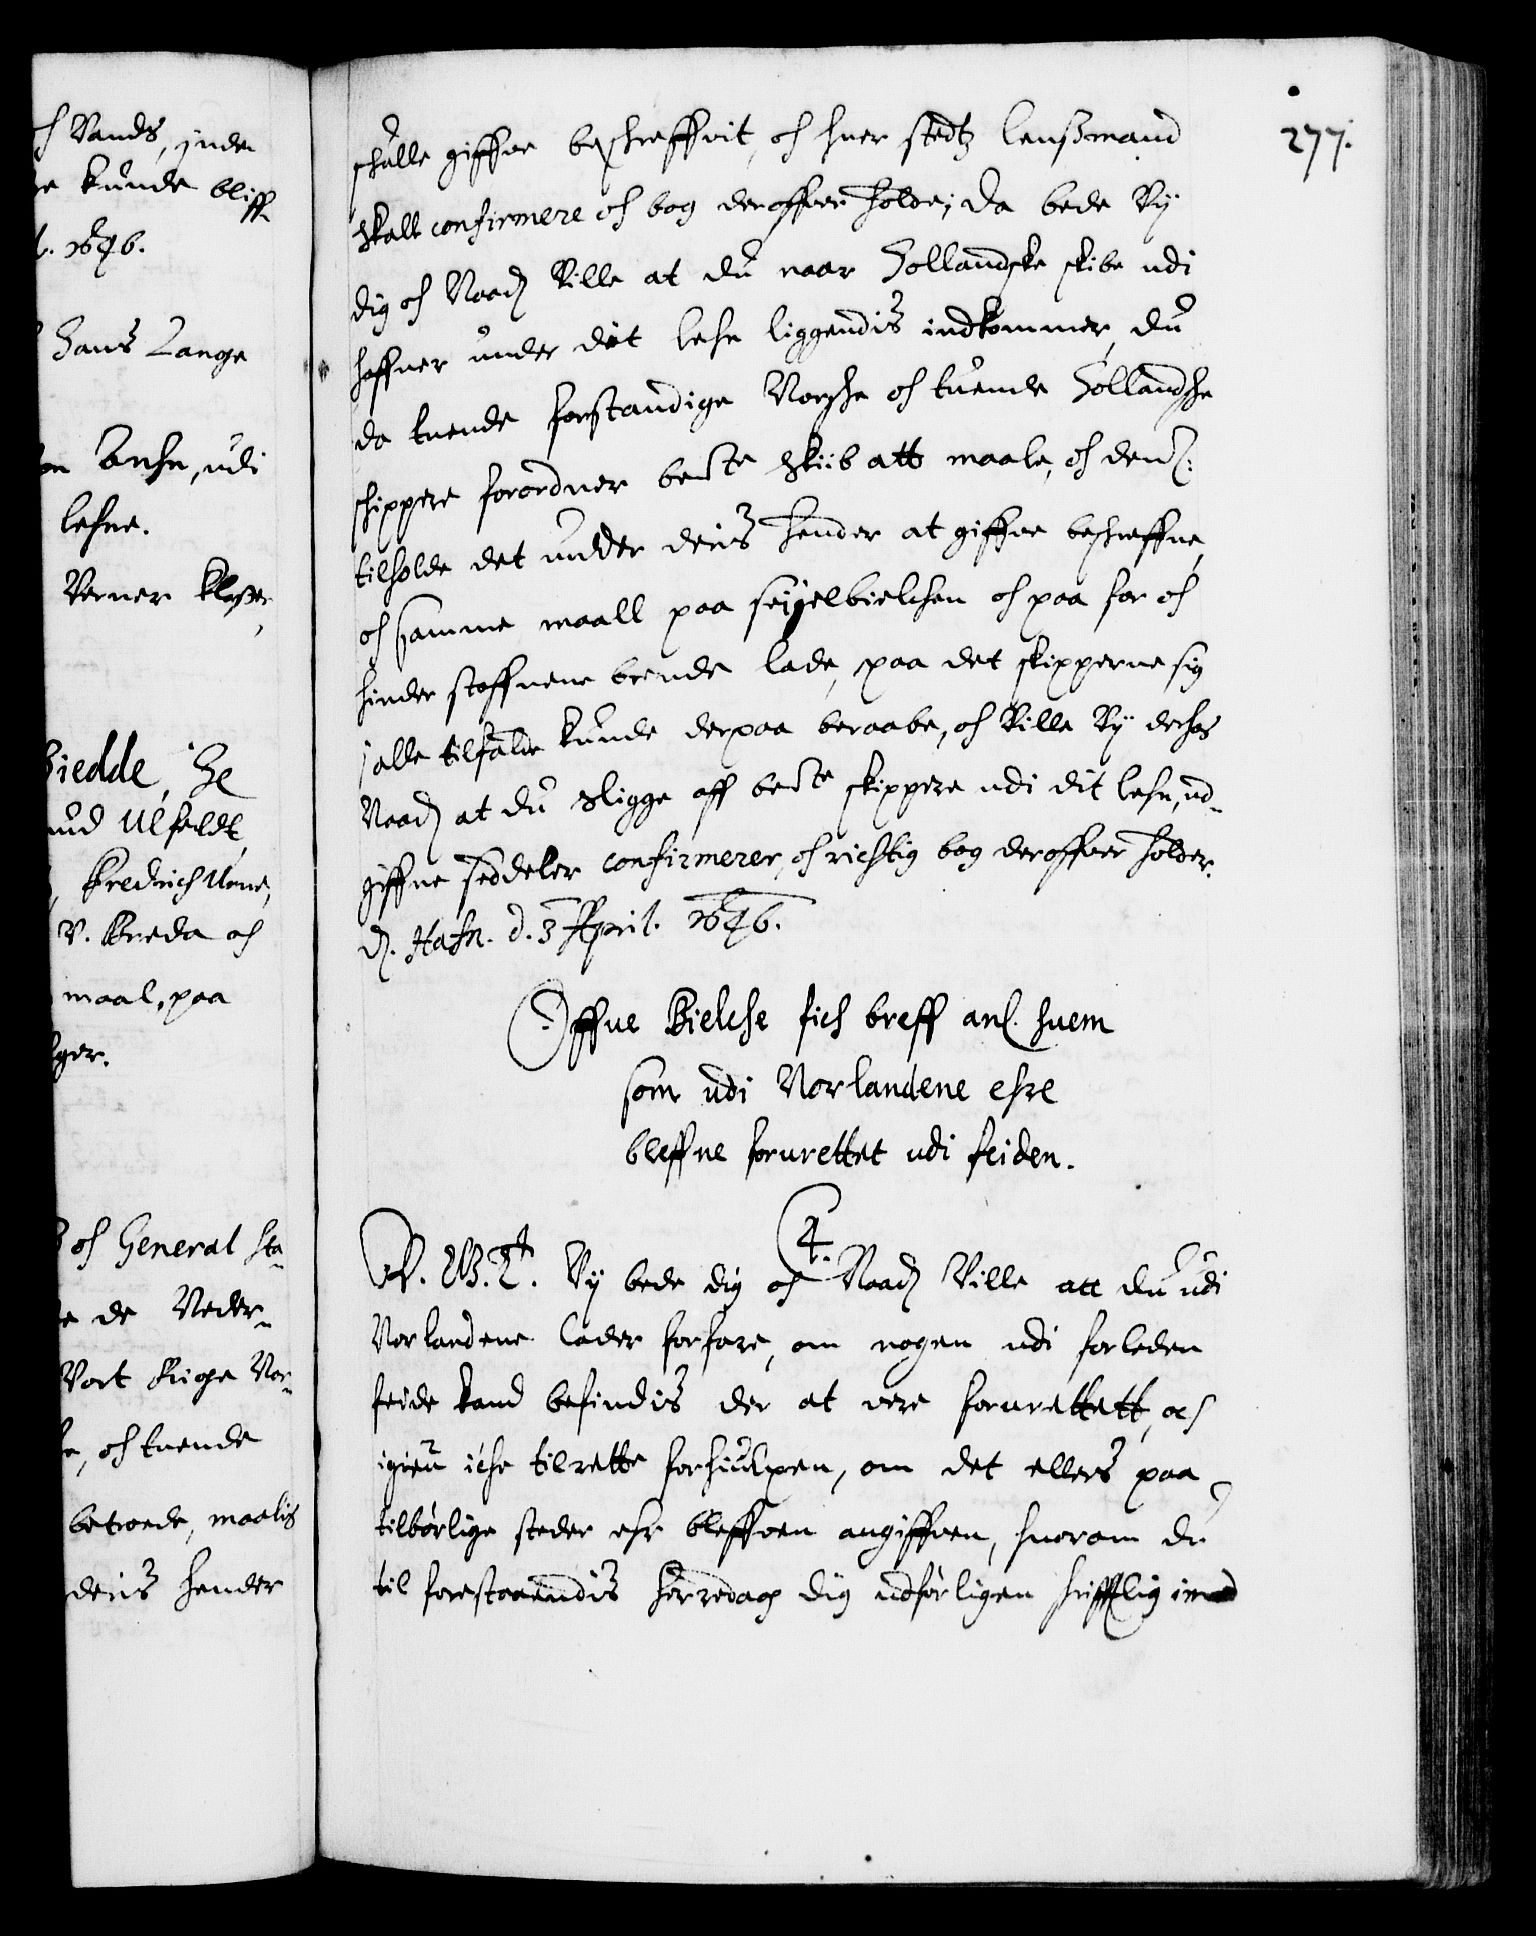 277.
schulle giffue beschreffuit, och huer stedtz lensmand
skall confirmere och bog deroffuer holde; da bede Vy
dig och Naadl Ville at du naar Hollandske skibe udi
haffner under dit lehn liggendis indkommer, du
da tuende forstandige Norske och tuende Hollandske
schippere forordner bente skiib att maale, och denl:
tilholde det under deris hender at giffue beschreffue,
och samme maall paa seigelbielchen och paa for och
hinder staffuene brende lade, paa det skipperne sig
j alle tilfalde kunde derpaa beraabe, och Ville Vy dechos
Naadl at du sligge aff bente skippere udi dit lehn, ud-
giffne seddeler confirmerer, och richtig bog deroffuer holder.
D. Hafn. d. 3 April. 1646.
Offue Bielche fich breff anl. huem
som udi Norlandene ehre
bleffne forurettet udi feiden.
C. 4. V. G. T. Vy bede dig och Naadl Ville att du udi
Norlandene lader forfare, om nogen udi forleden
feide kand befindis der at vere forurettett, och
igien iche tilrette forhiulpen, om det ellers paa
tilbørlige steder ehr bleffuen angiffuen, huorom du
til forestaaendis herredag dig udførligen skrifftlig imod
och Vands, inden
kunde bliff-
1646.
Hans Lange
Ansn, udi
lehne.
Verner Kloster,
Biedde, He
Ulfeldt,
Fredrich Urne,
V. Breda och
maal, paa
och General Sta-
de Neder-
Vort Rige Nor-
och tuende
betroede, maalis
deris hender